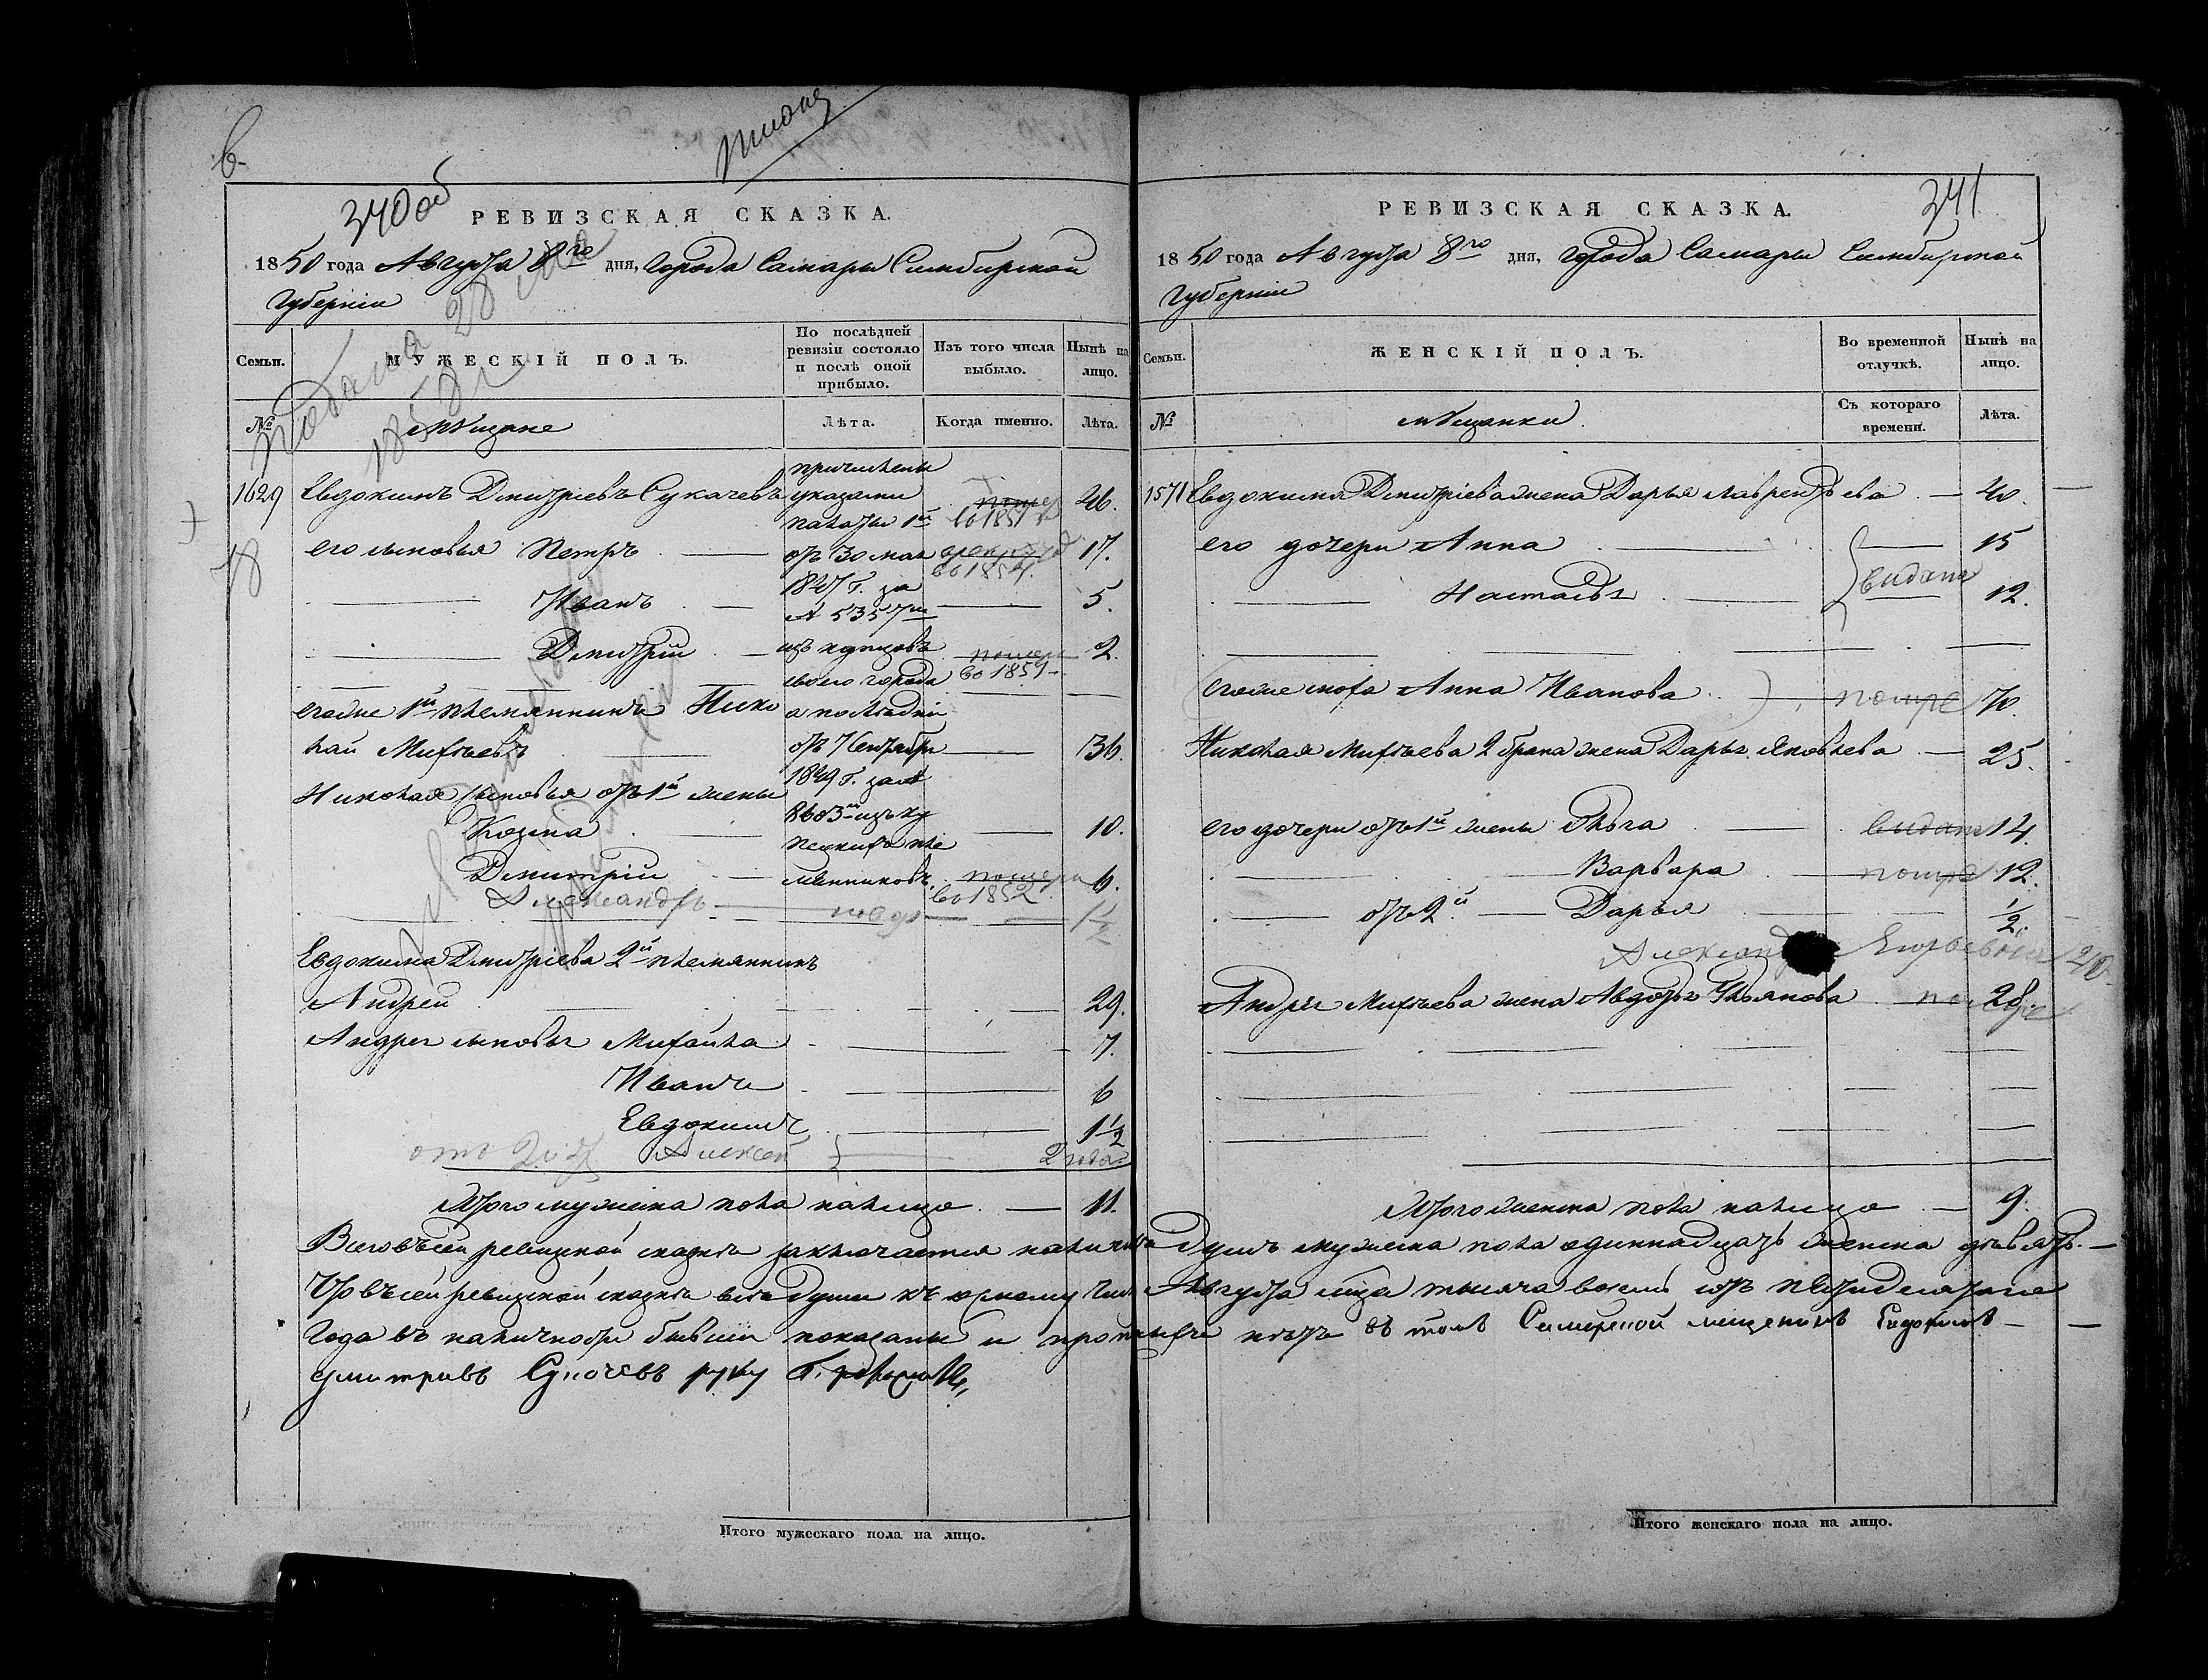 340 об
РЕВИЗСКАЯ СКАЗКА.
1850 года Августа 8го дня, города Самары Симбирской
Губерніи
Семьи.
МУЖЕСКІЙ ПОЛЪ.
По послѣдней ревизіи состояло и послѣ оной прибыло.
Изъ того числа выбыло.
Нынѣ на лицо.
№
мѣщане
Лѣта.
Когда именно.
Лѣта.
Подана 28 мая
1858 г
1629 Евдокимъ Дмитріевъ Сукачевъ 46.
его сыновья Петръ 17.
Иванъ 5.
Дмитрій 2.
причислены
указами
палаты 1й
отъ 30 мая
1847 г. за
№ 5357м
изъ купцовъ
сего города
а послѣдніи
отъ 7 Сентября
1849 г. за №
8603м изъ ку
помер
во 1851
во 1854.
помер
во 1851
егоже 1й племянникъ Нико
лай Михѣевъ 36.
Николая сыновья отъ 1й жены
Козма 10.
Дмитрій помер 6.
во 1852
Александръ 1½
Евдокима Дмитріева 2й племянникъ
Андрей 29.
Андрея сыновья Михайла 7.
Иванъ 6
Евдокимъ 1½
Алексей 2 года
Итого мужеска пола налицо 11.
341
РЕВИЗСКАЯ СКАЗКА.
1850 года Августа 8го дня, города Самары Симбирской
Губерніи
Семьи.
ЖЕНСКІЙ ПОЛЪ.
Во временной отлучкѣ.
Нынѣ на лицо.
№
мѣщанки
Съ котораго времени.
Лѣта.
1571 Евдокима Дмитріева жена Дарья Лаврентьева 40.
его дочери Анна 15
Настасья 12.
выдана
егоже мать Анна Иванова помре 70.
Николая Михѣева 2 брака жена Дарья Яковлева 25.
его дочери отъ 1й жены Ольга выдана 14.
Варвара помре 12.
отъ 2й Дарья ½.
Андрея Михѣева жена Авдотья Ульянова 28.
Итого женска пола налицо 9.
Всего въ сей ревизской сказкѣ заключается наличныхъ душъ мужеска пола одиннадцать женска девять.
Что въ сей ревизской сказкѣ всѣ души къ 1му числу Августа мца тысяча восемь сотъ пятидесятаго
года въ наличности бывшіи показаны и прописныхъ нетъ въ томъ Самарской мещенинъ Евдокимъ
дмитривъ Сукочевъ руку приложилъ
Итого мужескаго пола на лицо.
Итого женскаго пола на лицо.